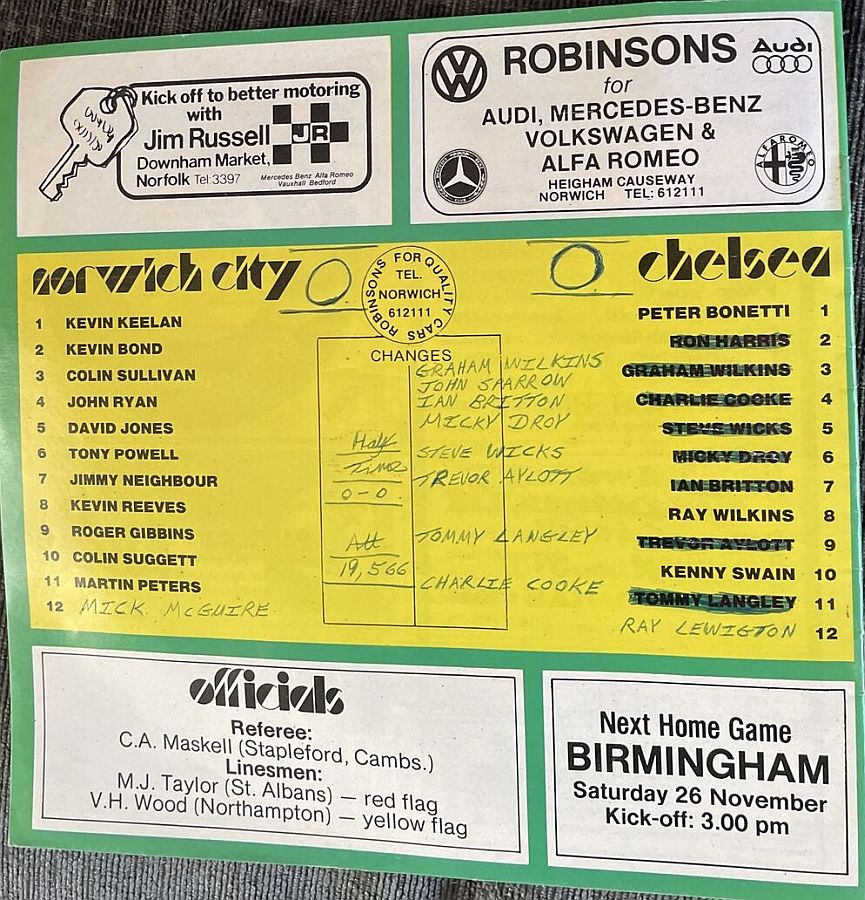 Kick off to better motoring
with
Jim Russell JR
Downham Market,
Norfolk Tel:3397
Mercedes Benz Alfa Romeo
Vauxhall Bedford
VW ROBINSONS Audi
for
AUDI, MERCEDES-BENZ
VOLKSWAGEN &
ALFA ROMEO
HEIGHAM CAUSEWAY
NORWICH TEL: 612111
ALFA ROMEO
norwich city 0
ROBINSONS FOR QUALITY CARS
TEL.
NORWICH
612111
0 chelsea
1 KEVIN KEELAN
2 KEVIN BOND
3 COLIN SULLIVAN
4 JOHN RYAN
5 DAVID JONES
6 TONY POWELL
7 JIMMY NEIGHBOUR
8 KEVIN REEVES
9 ROGER GIBBINS
10 COLIN SUGGETT
11 MARTIN PETERS
12 MICK McGUIRE
CHANGES
Half
Time
0-0.
Att
19,566
GRAHAM WILKINS
JOHN SPARROW
IAN BRITTON
MICKY DROY
STEVE WICKS
TREVOR AYLOTT
TOMMY LANGLEY
CHARLIE COOKE
PETER BONETTI 1
RON HARRIS 2
GRAHAM WILKINS 3
CHARLIE COOKE 4
STEVE WICKS 5
MICKY DROY 6
IAN BRITTON 7
RAY WILKINS 8
TREVOR AYLOTT 9
KENNY SWAIN 10
TOMMY LANGLEY 11
RAY LEWIGTON 12
officials
Referee:
C.A. Maskell (Stapleford, Cambs.)
Linesmen:
M.J. Taylor (St. Albans) — red flag
V.H. Wood (Northampton) — yellow flag
Next Home Game
BIRMINGHAM
Saturday 26 November
Kick-off: 3.00 pm